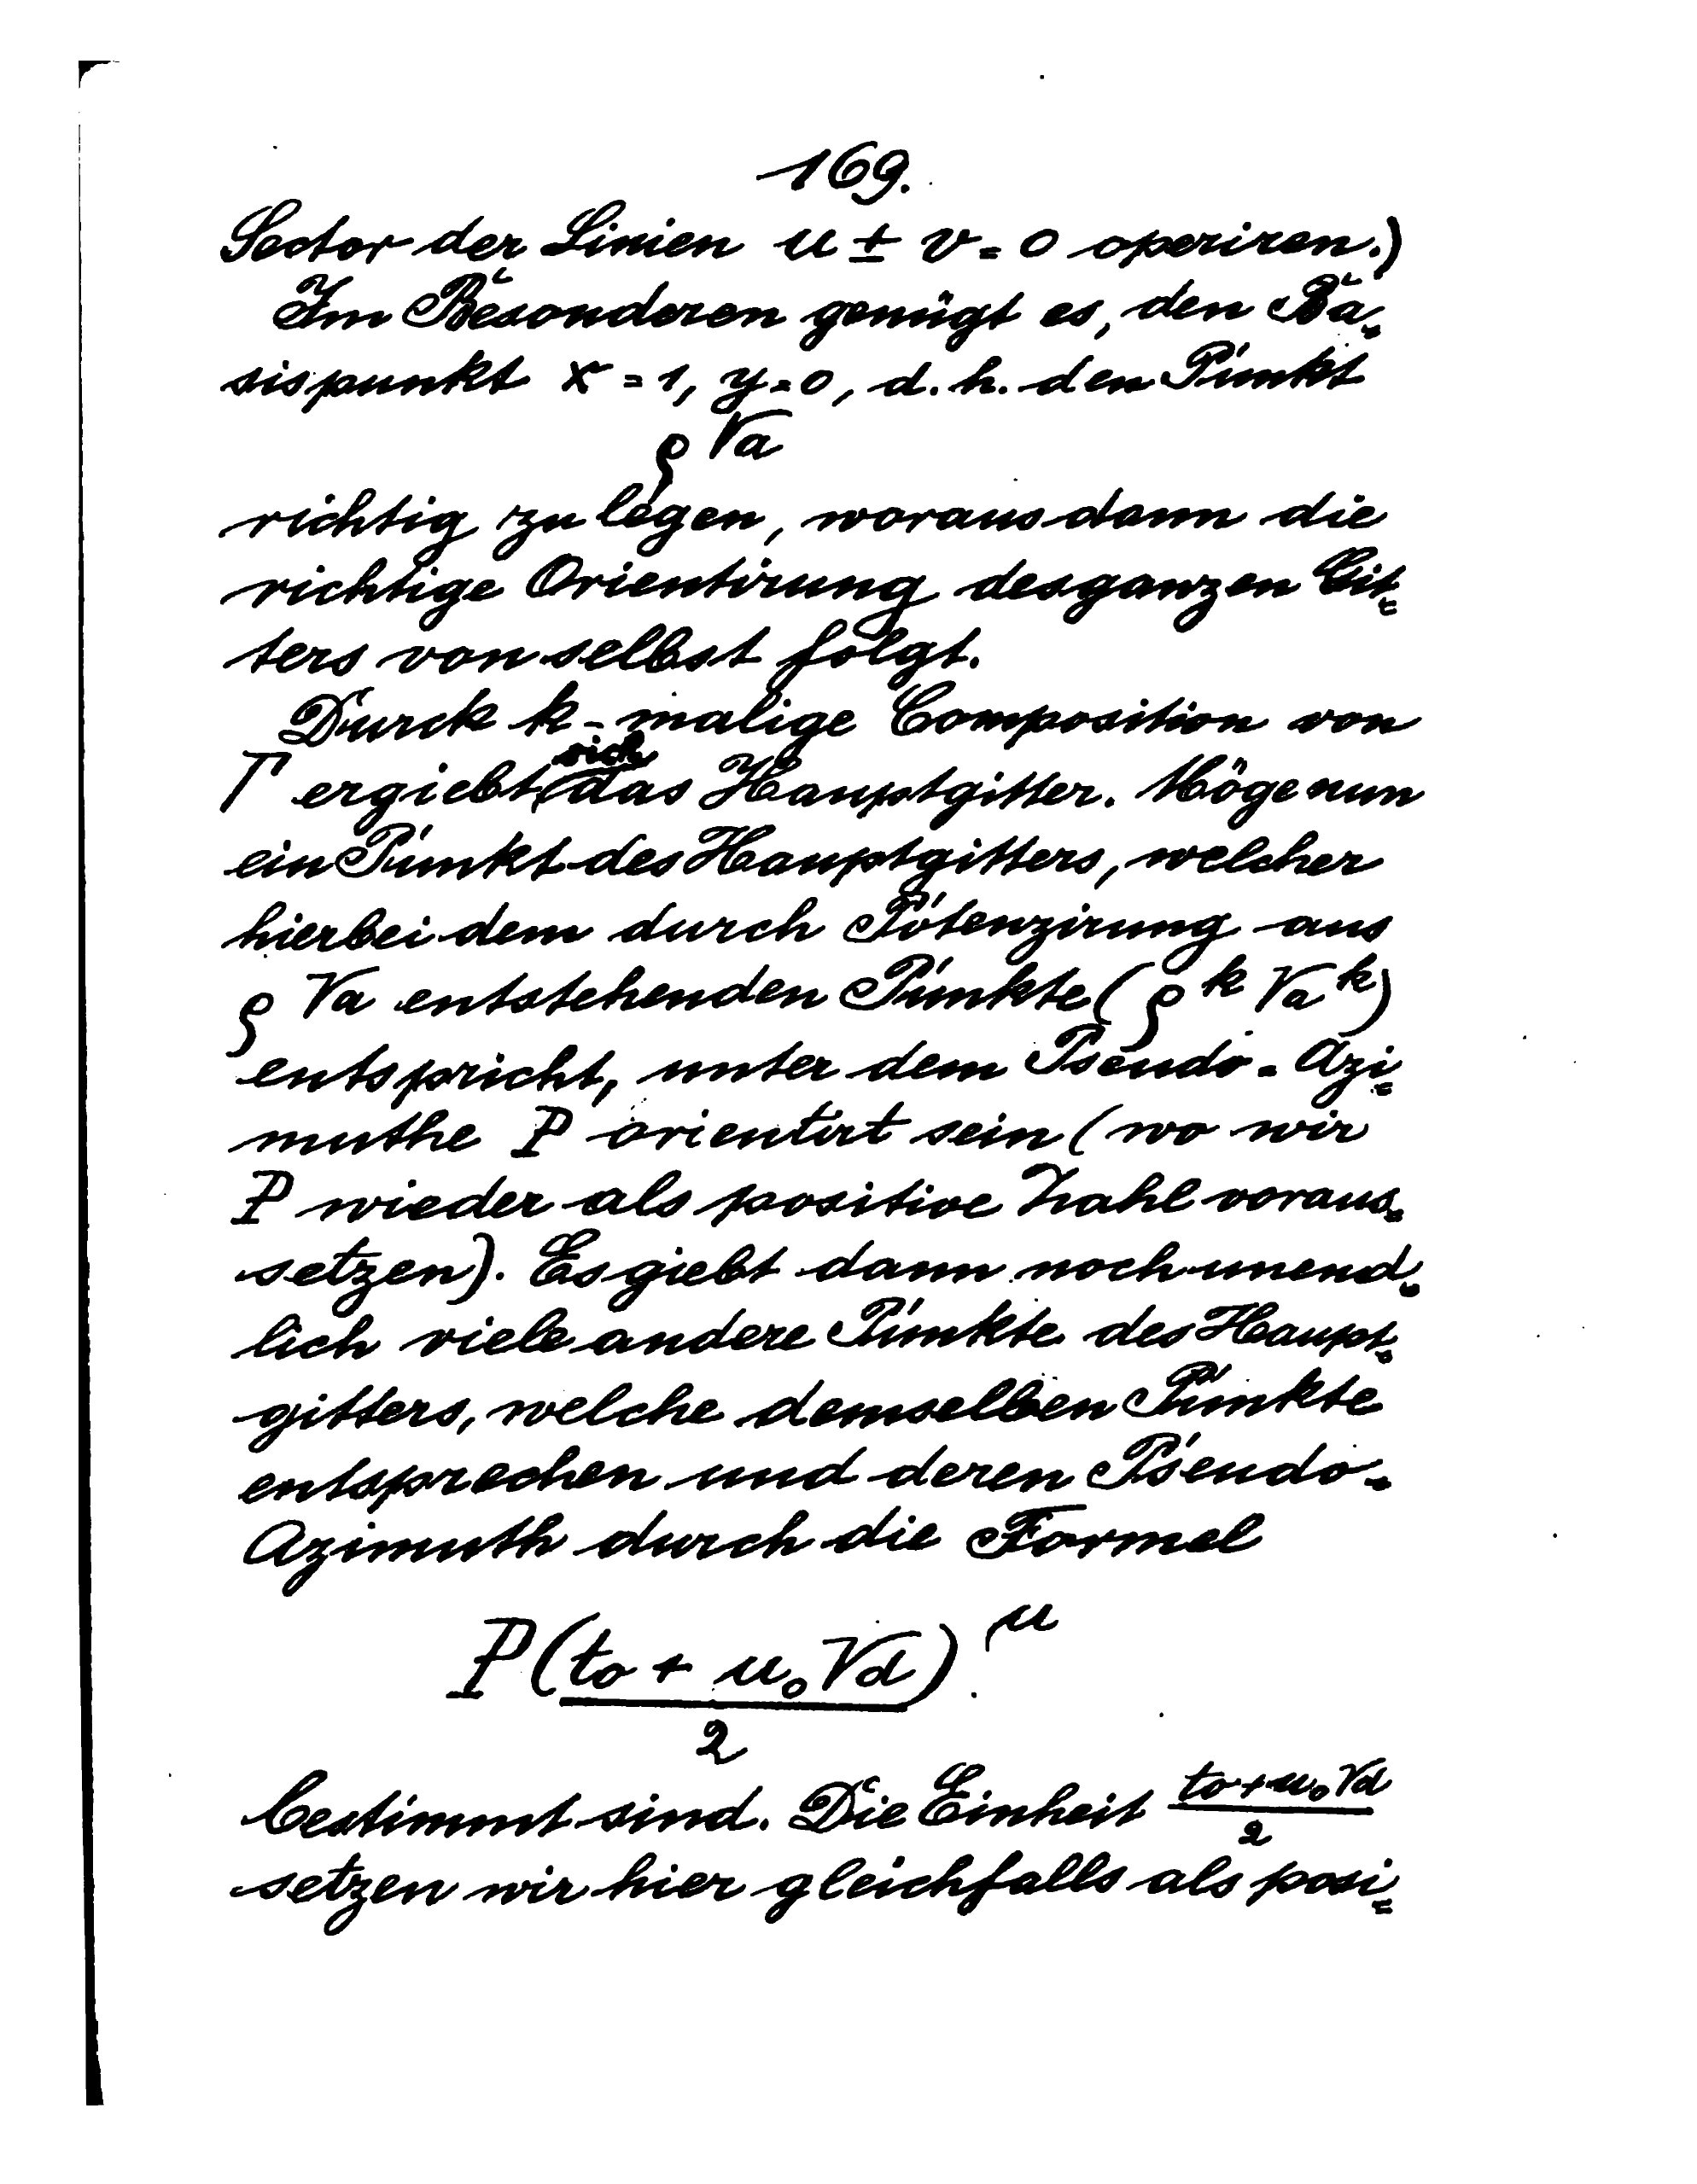 169.
Sector der Linien u ± v = 0 operiren.)
Im Besonderen genügt es, den Ba-
sispunkt x = 1, y = 0, d. h. den Punkt
ρ √a
richtig zu legen, woraus dann die
richtige Orientirung des ganzen Git-
ters von selbst folgt.
Durch k-malige Composition von
Γ ergiebt sich das Hauptgitter. Möge nun
ein Punkt des Hauptgitters, welcher
hierbei dem durch Potenzirung aus
ρ √a entstehenden Punkte (ρ^k √a^k)
entspricht, unter dem Pseudo-Azi-
muthe P orientirt sein (wo wir
P wieder als positive Zahl voraus-
setzen). Es giebt dann noch unend-
lich viele andere Punkte des Haupt-
gitters, welche demselben Punkte
entsprechen und deren Pseudo-
Azimuth durch die Formel
P((t₀ + u₀ √d)/2)^μ
bestimmt sind. Die Einheit (t₀ + u₀ √d)/2
setzen wir hier gleichfalls als posi-